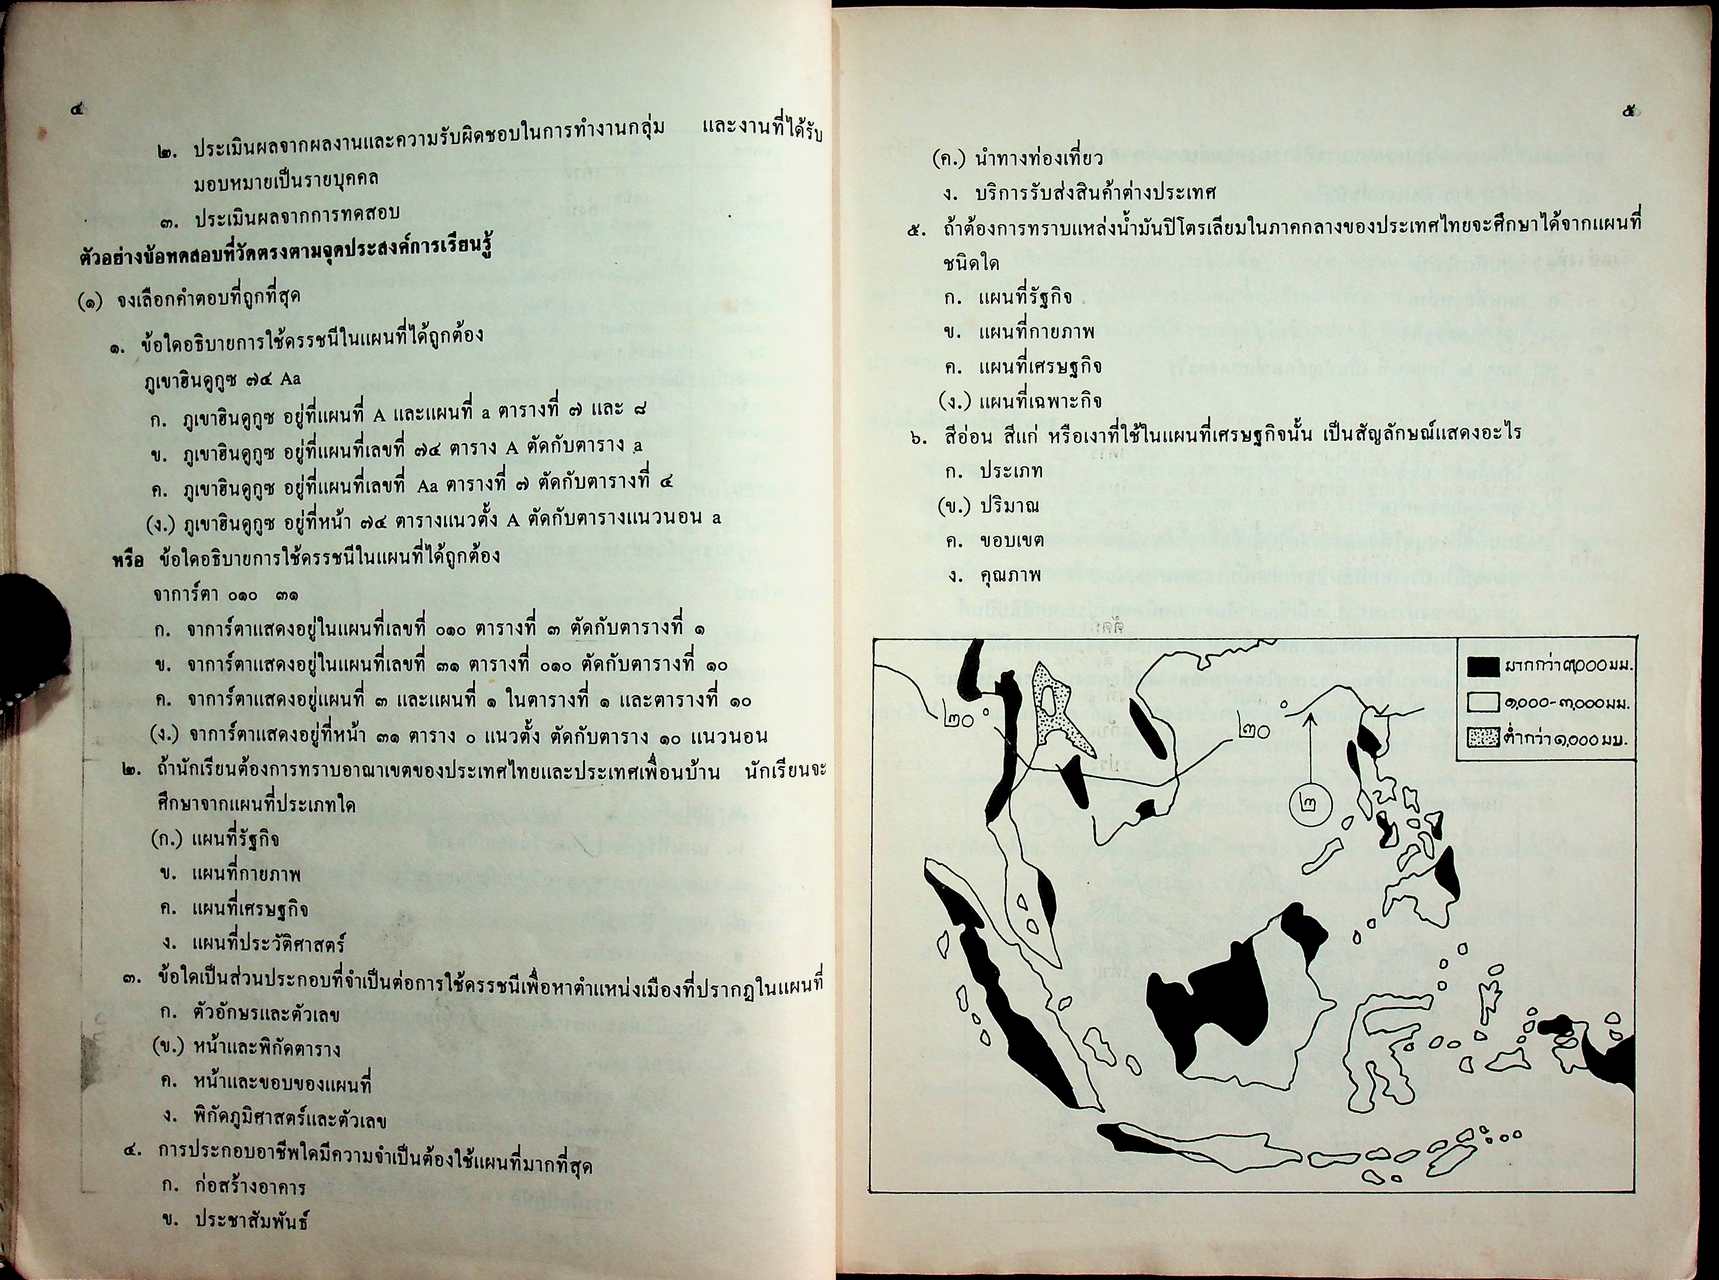 ๔
๒. ประเมินผลจากผลงานและความรับผิดชอบในการทำงานกลุ่ม และงานที่ได้รับ
มอบหมายเป็นรายบุคคล
๓. ประเมินผลจากการทดสอบ
ตัวอย่างข้อทดสอบที่วัดตรงตามจุดประสงค์การเรียนรู้
(๑) จงเลือกคำตอบที่ถูกที่สุด
๑. ข้อใดอธิบายการใช้ดรรชนีในแผนที่ได้ถูกต้อง
ภูเขาฮินดูกูซ ๗๔ Aa
ก. ภูเขาฮินดูกูซ อยู่ที่แผนที่ A และแผนที่ a ตารางที่ ๗ และ ๘
ข. ภูเขาฮินดูกูซ อยู่ที่แผนที่เลขที่ ๗๔ ตาราง A ตัดกับตาราง a
ค. ภูเขาฮินดูกูซ อยู่ที่แผนที่เลขที่ Aa ตารางที่ ๗ ตัดกับตารางที่ ๔
(ง.) ภูเขาฮินดูกูซ อยู่ที่หน้า ๗๔ ตารางแนวตั้ง A ตัดกับตารางแนวนอน a
หรือ ข้อใดอธิบายการใช้ดรรชนีในแผนที่ได้ถูกต้อง
จาการ์ตา ๐๑๐ ๓๑
ก. จาการ์ตาแสดงอยู่ในแผนที่เลขที่ ๐๑๐ ตารางที่ ๓ ตัดกับตารางที่ ๑
ข. จาการ์ตาแสดงอยู่ในแผนที่เลขที่ ๓๑ ตารางที่ ๐๑๐ ตัดกับตารางที่ ๑๐
ค. จาการ์ตาแสดงอยู่แผนที่ ๓ และแผนที่ ๑ ในตารางที่ ๑ และตารางที่ ๑๐
(ง.) จาการ์ตาแสดงอยู่ที่หน้า ๓๑ ตาราง ๐ แนวตั้ง ตัดกับตาราง ๑๐ แนวนอน
๒. ถ้านักเรียนต้องการทราบอาณาเขตของประเทศไทยและประเทศเพื่อนบ้าน นักเรียนจะ
ศึกษาจากแผนที่ประเภทใด
(ก.) แผนที่รัฐกิจ
ข. แผนที่กายภาพ
ค. แผนที่เศรษฐกิจ
ง. แผนที่ประวัติศาสตร์
๓. ข้อใดเป็นส่วนประกอบที่จำเป็นต่อการใช้ดรรชนีเพื่อหาตำแหน่งเมืองที่ปรากฏในแผนที่
ก. ตัวอักษรและตัวเลข
(ข.) หน้าและพิกัดตาราง
ค. หน้าและขอบของแผนที่
ง. พิกัดภูมิศาสตร์และตัวเลข
๔. การประกอบอาชีพใดมีความจำเป็นต้องใช้แผนที่มากที่สุด
ก. ก่อสร้างอาคาร
ข. ประชาสัมพันธ์
๕
(ค.) นำทางท่องเที่ยว
ง. บริการรับส่งสินค้าต่างประเทศ
๕. ถ้าต้องการทราบแหล่งน้ำมันปิโตรเลียมในภาคกลางของประเทศไทยจะศึกษาได้จากแผนที่
ชนิดใด
ก. แผนที่รัฐกิจ
ข. แผนที่กายภาพ
ค. แผนที่เศรษฐกิจ
(ง.) แผนที่เฉพาะกิจ
๖. สีอ่อน สีแก่ หรือเงาที่ใช้ในแผนที่เศรษฐกิจนั้น เป็นสัญลักษณ์แสดงอะไร
ก. ประเภท
(ข.) ปริมาณ
ค. ขอบเขต
ง. คุณภาพ
มากกว่า๓,๐๐๐ มม.
๑,๐๐๐-๓,๐๐๐ มม.
ต่ำกว่า๑,๐๐๐ มม.
๒๐°
๒๐°
๒